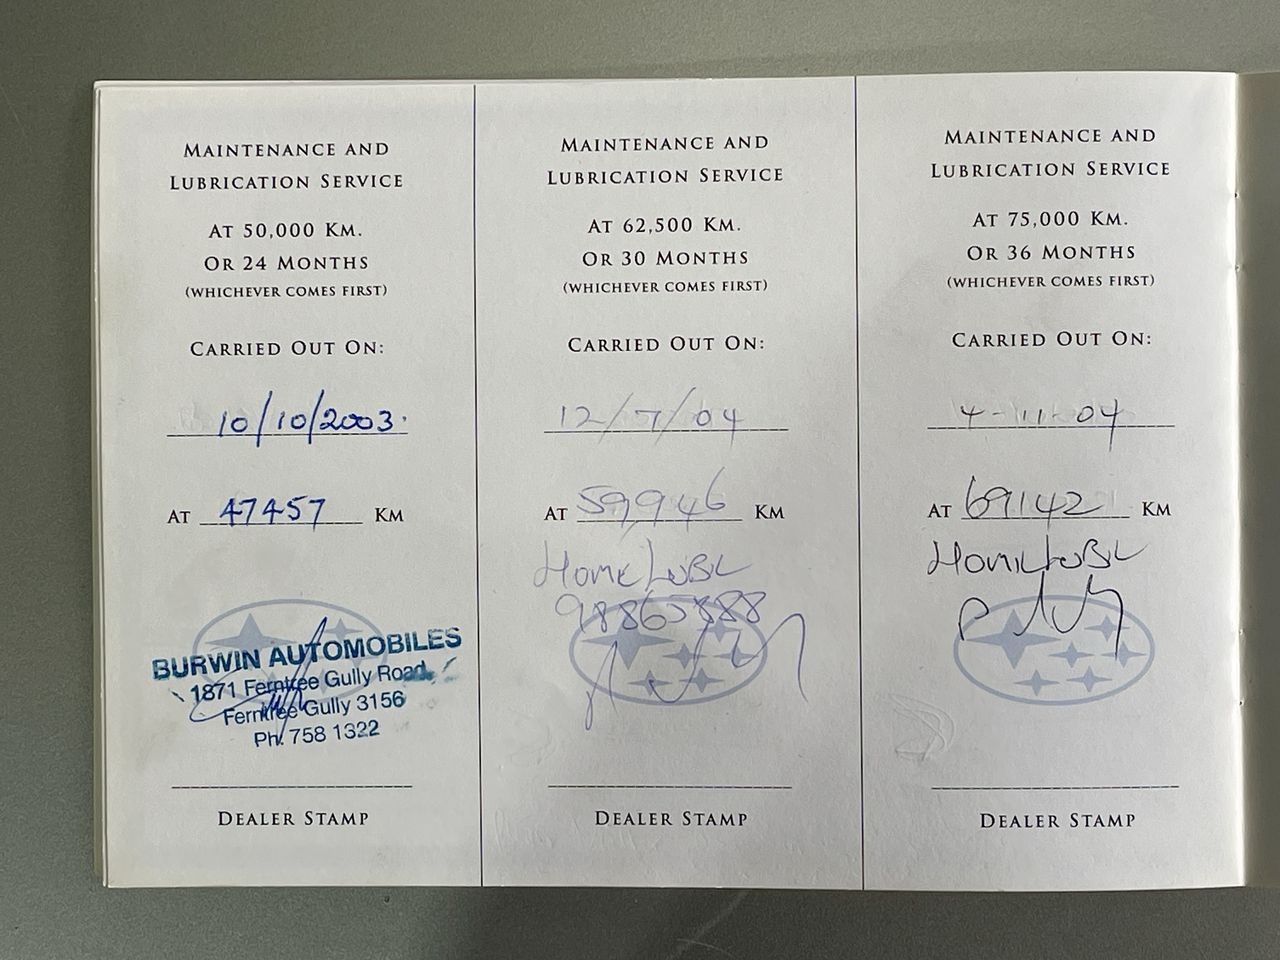 MAINTENANCE AND
LUBRICATION SERVICE
AT 50,000 KM.
OR 24 MONTHS
(WHICHEVER COMES FIRST)
CARRIED OUT ON:
10/10/2003.
AT 47457 KM
BURWIN AUTOMOBILES
1871 Ferntree Gully Road
Ferntree Gully 3156
Ph. 758 1322
DEALER STAMP
MAINTENANCE AND
LUBRICATION SERVICE
AT 62,500 KM.
OR 30 MONTHS
(WHICHEVER COMES FIRST)
CARRIED OUT ON:
12/7/04
AT 59,946 KM
HOME LUBE
98865888
DEALER STAMP
MAINTENANCE AND
LUBRICATION SERVICE
AT 75,000 KM.
OR 36 MONTHS
(WHICHEVER COMES FIRST)
CARRIED OUT ON:
4-11-04
AT 69142 KM
HOME LUBE
DEALER STAMP